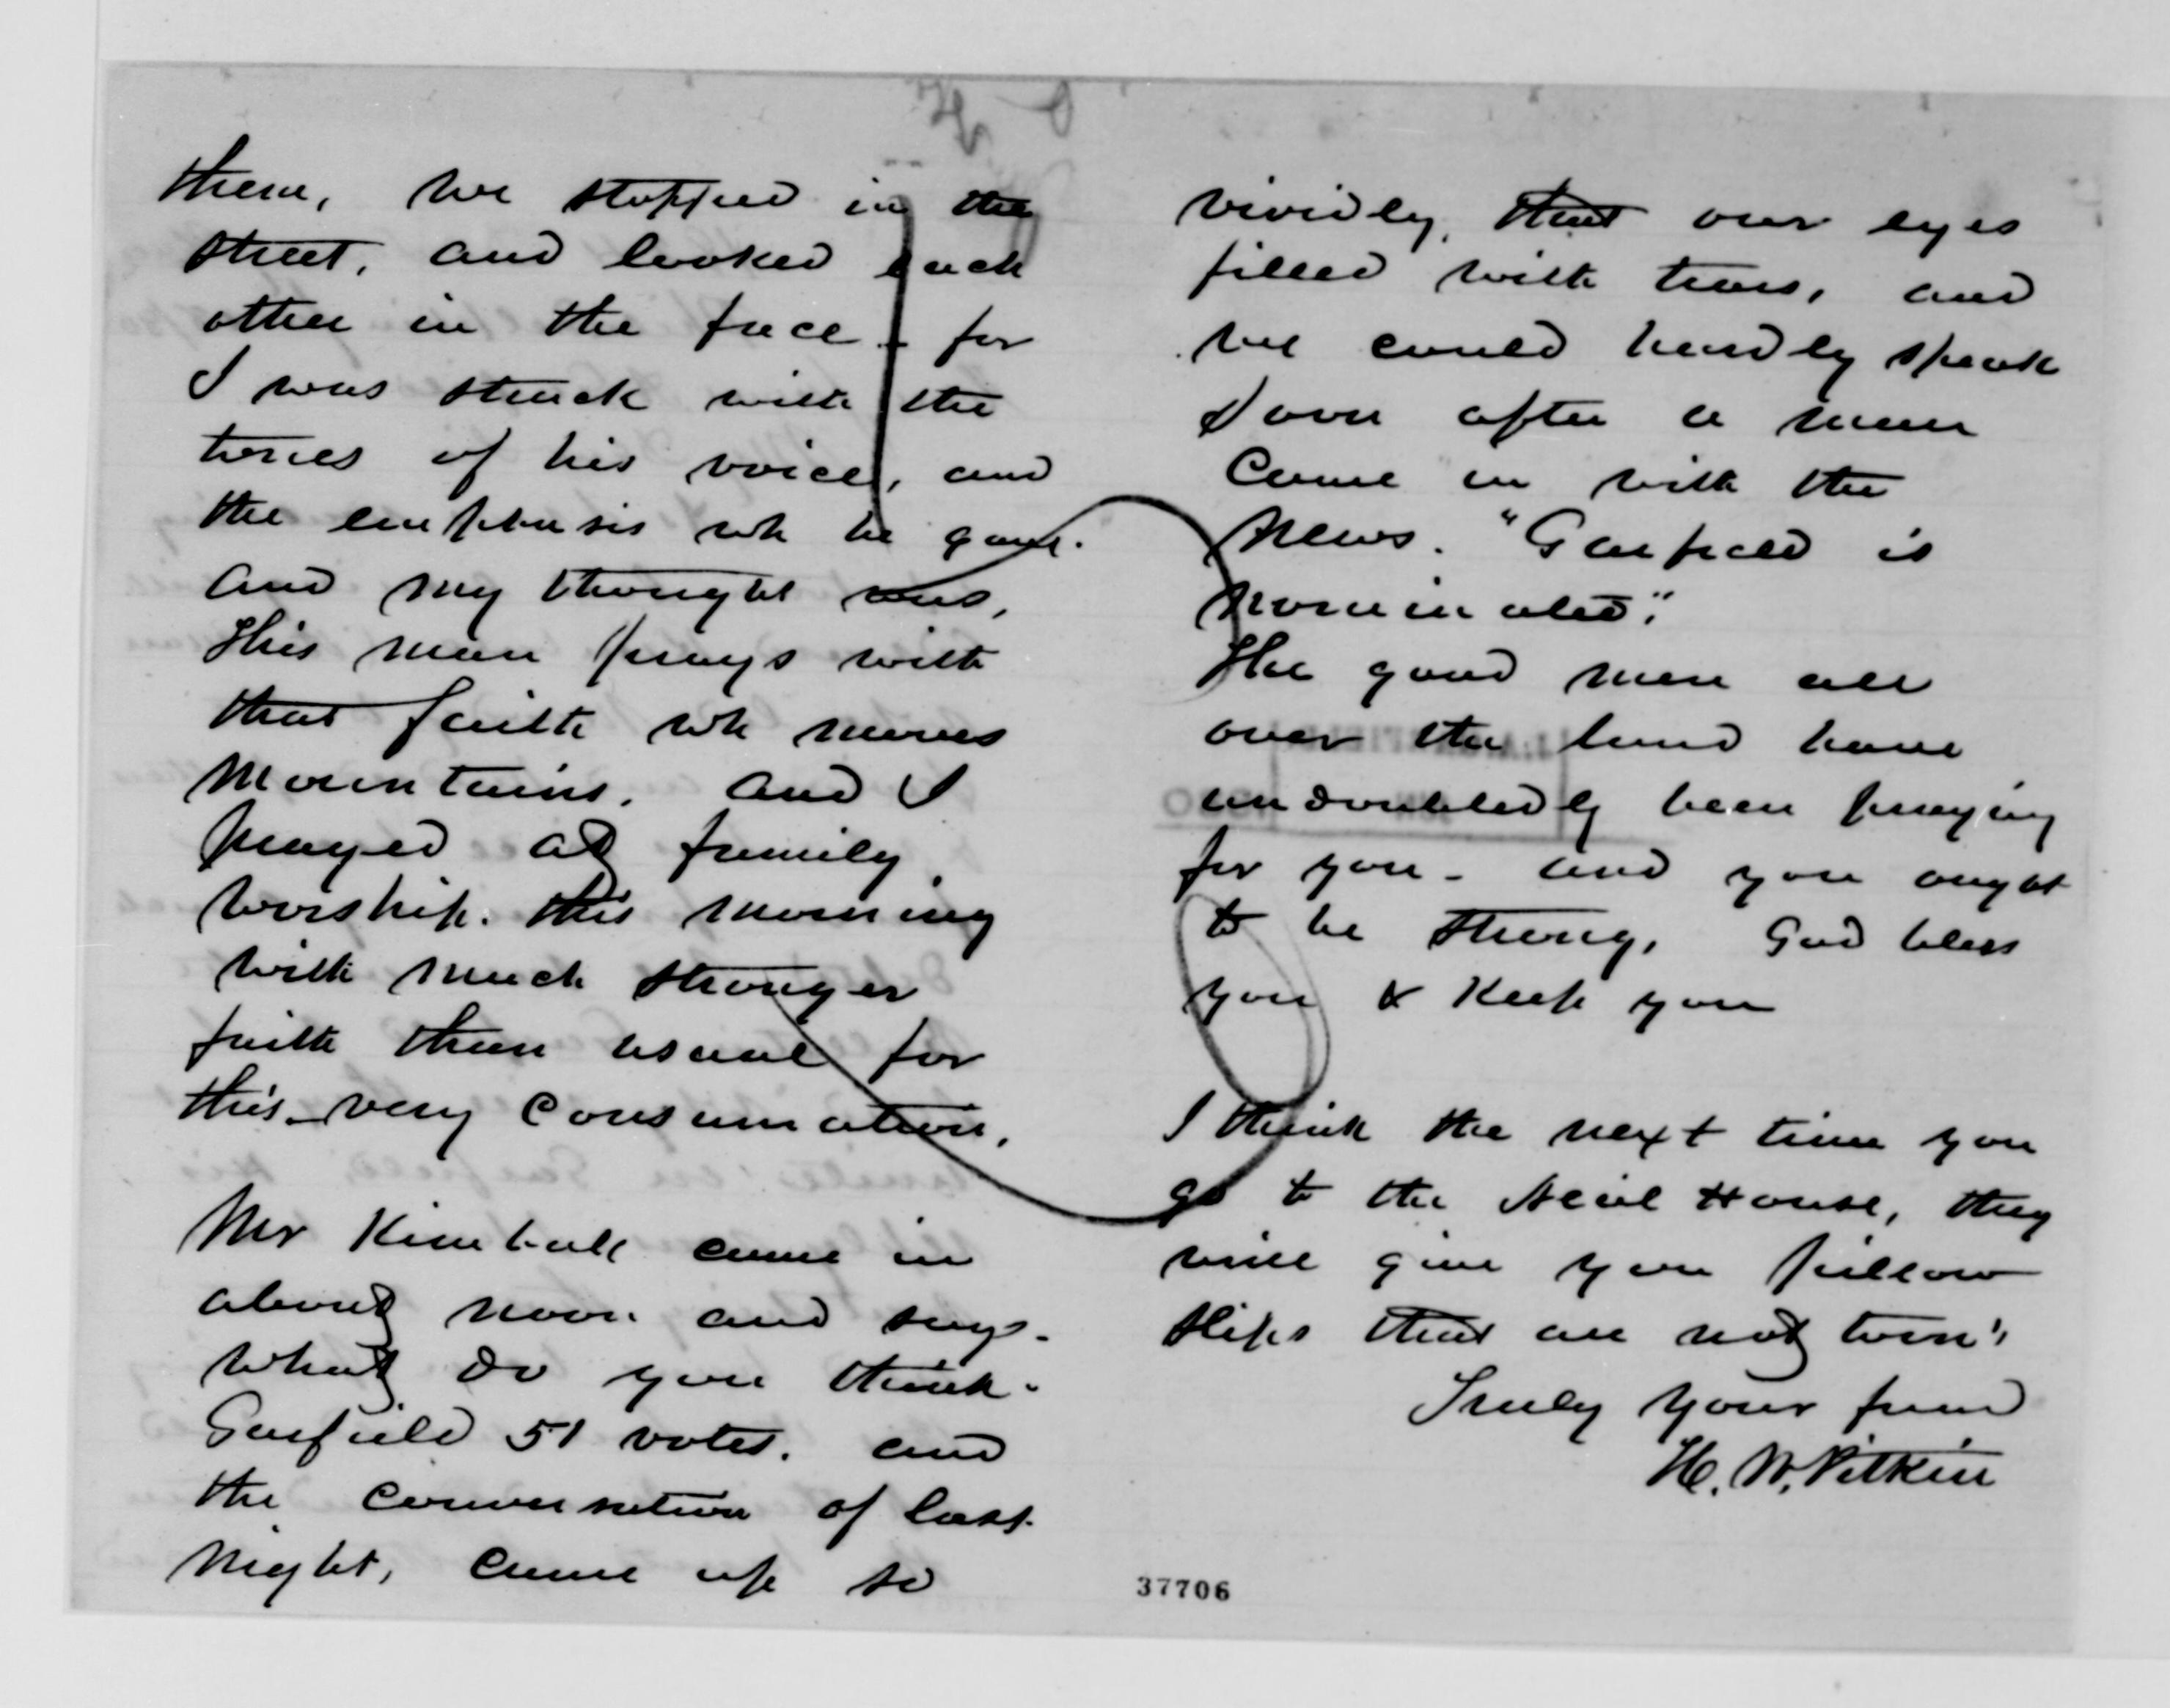 them, we stopped in the
street, and looked each
other in the face - for
I was struck with the
tones of his voice, and
the emphasis wh he gave.
And my thought was,
this man prays with
that faith wh moves
Mountains. And I
prayed at family
worship. this morning
with much stronger
faith than usual for
this very consumation.
Mr Kimball came in
about noon and says -
what do you think -
Garfield 51 votes. and
the conversation of last
night, came up so
vividly, that our eyes
filled with tears, and
we could hardly speak
Soon after a man
came in with the
news. "Garfield is
nominated".
The good men all
over the land have
undoubtedly been praying
for you - and you ought
to be strong. God bless
you & Keep you
I think the next time you
go to the Neil House, they
will give you pillow
slips that are not torn.
Truly your friend
H. W. Pitkin
37706